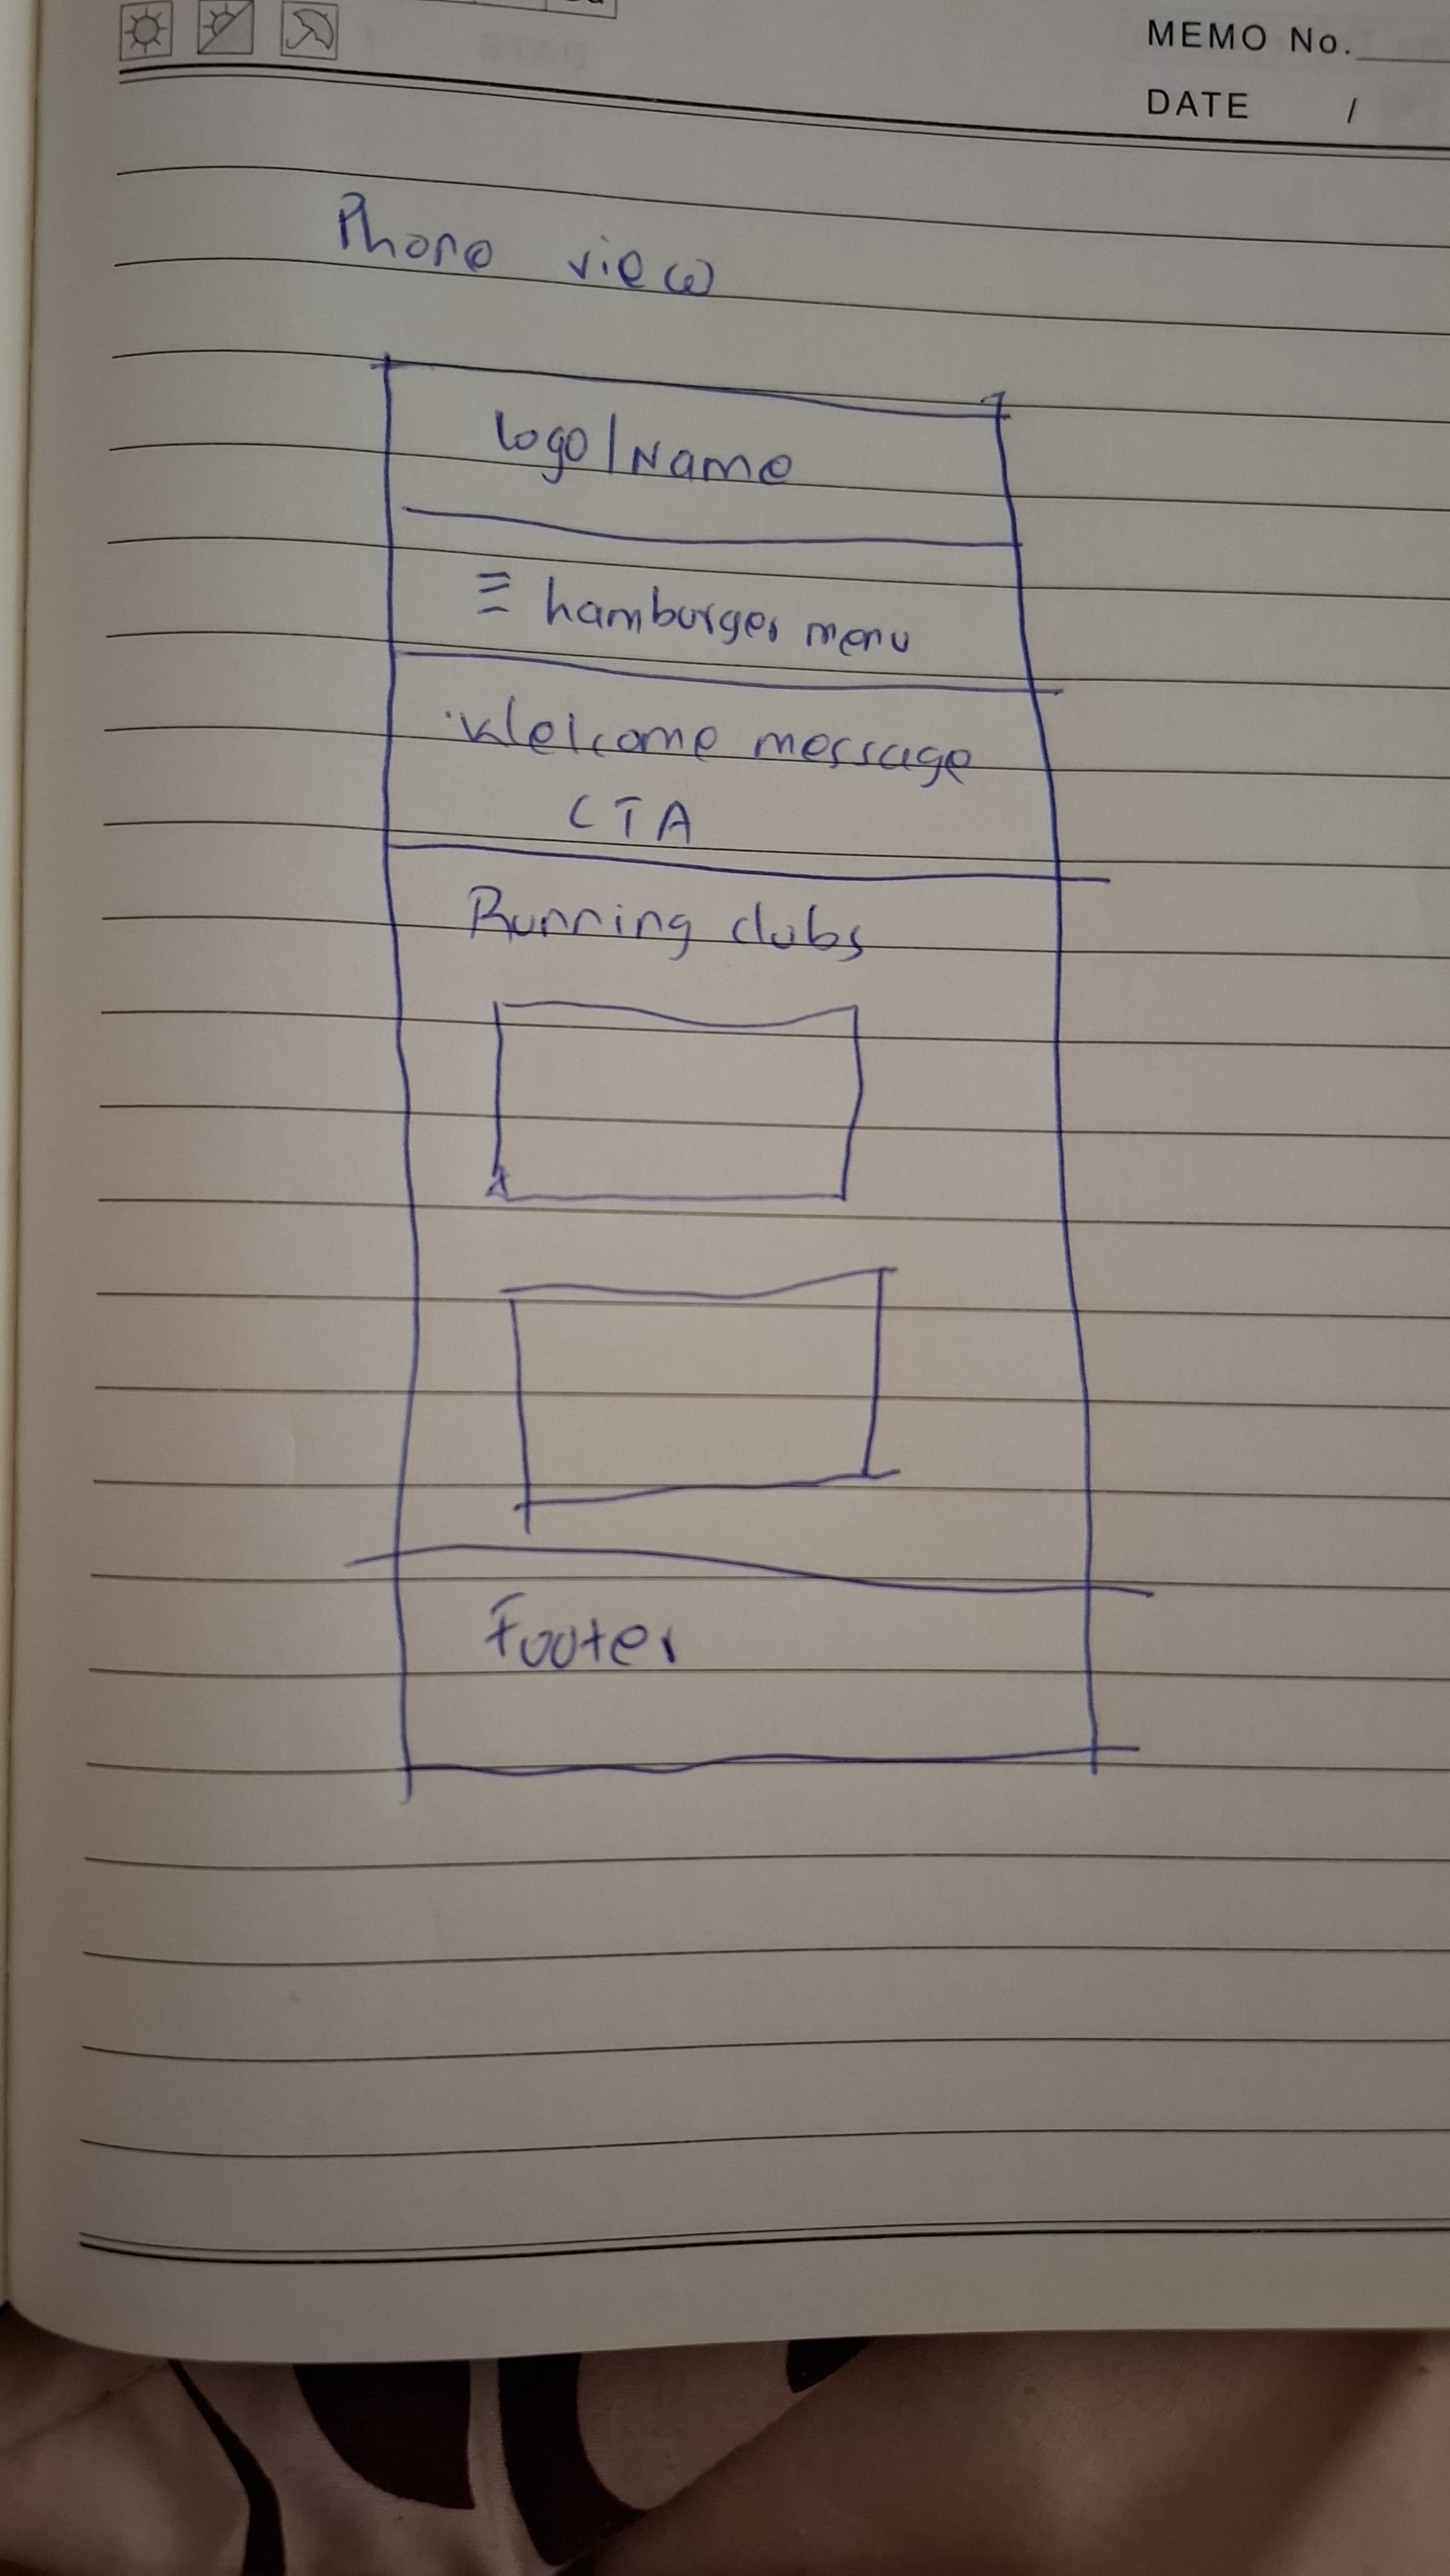 MEMO No.
DATE /
Phone view
Logo/Name
≡ hamburger menu
Welcome message
CTA
Running clubs
Footer